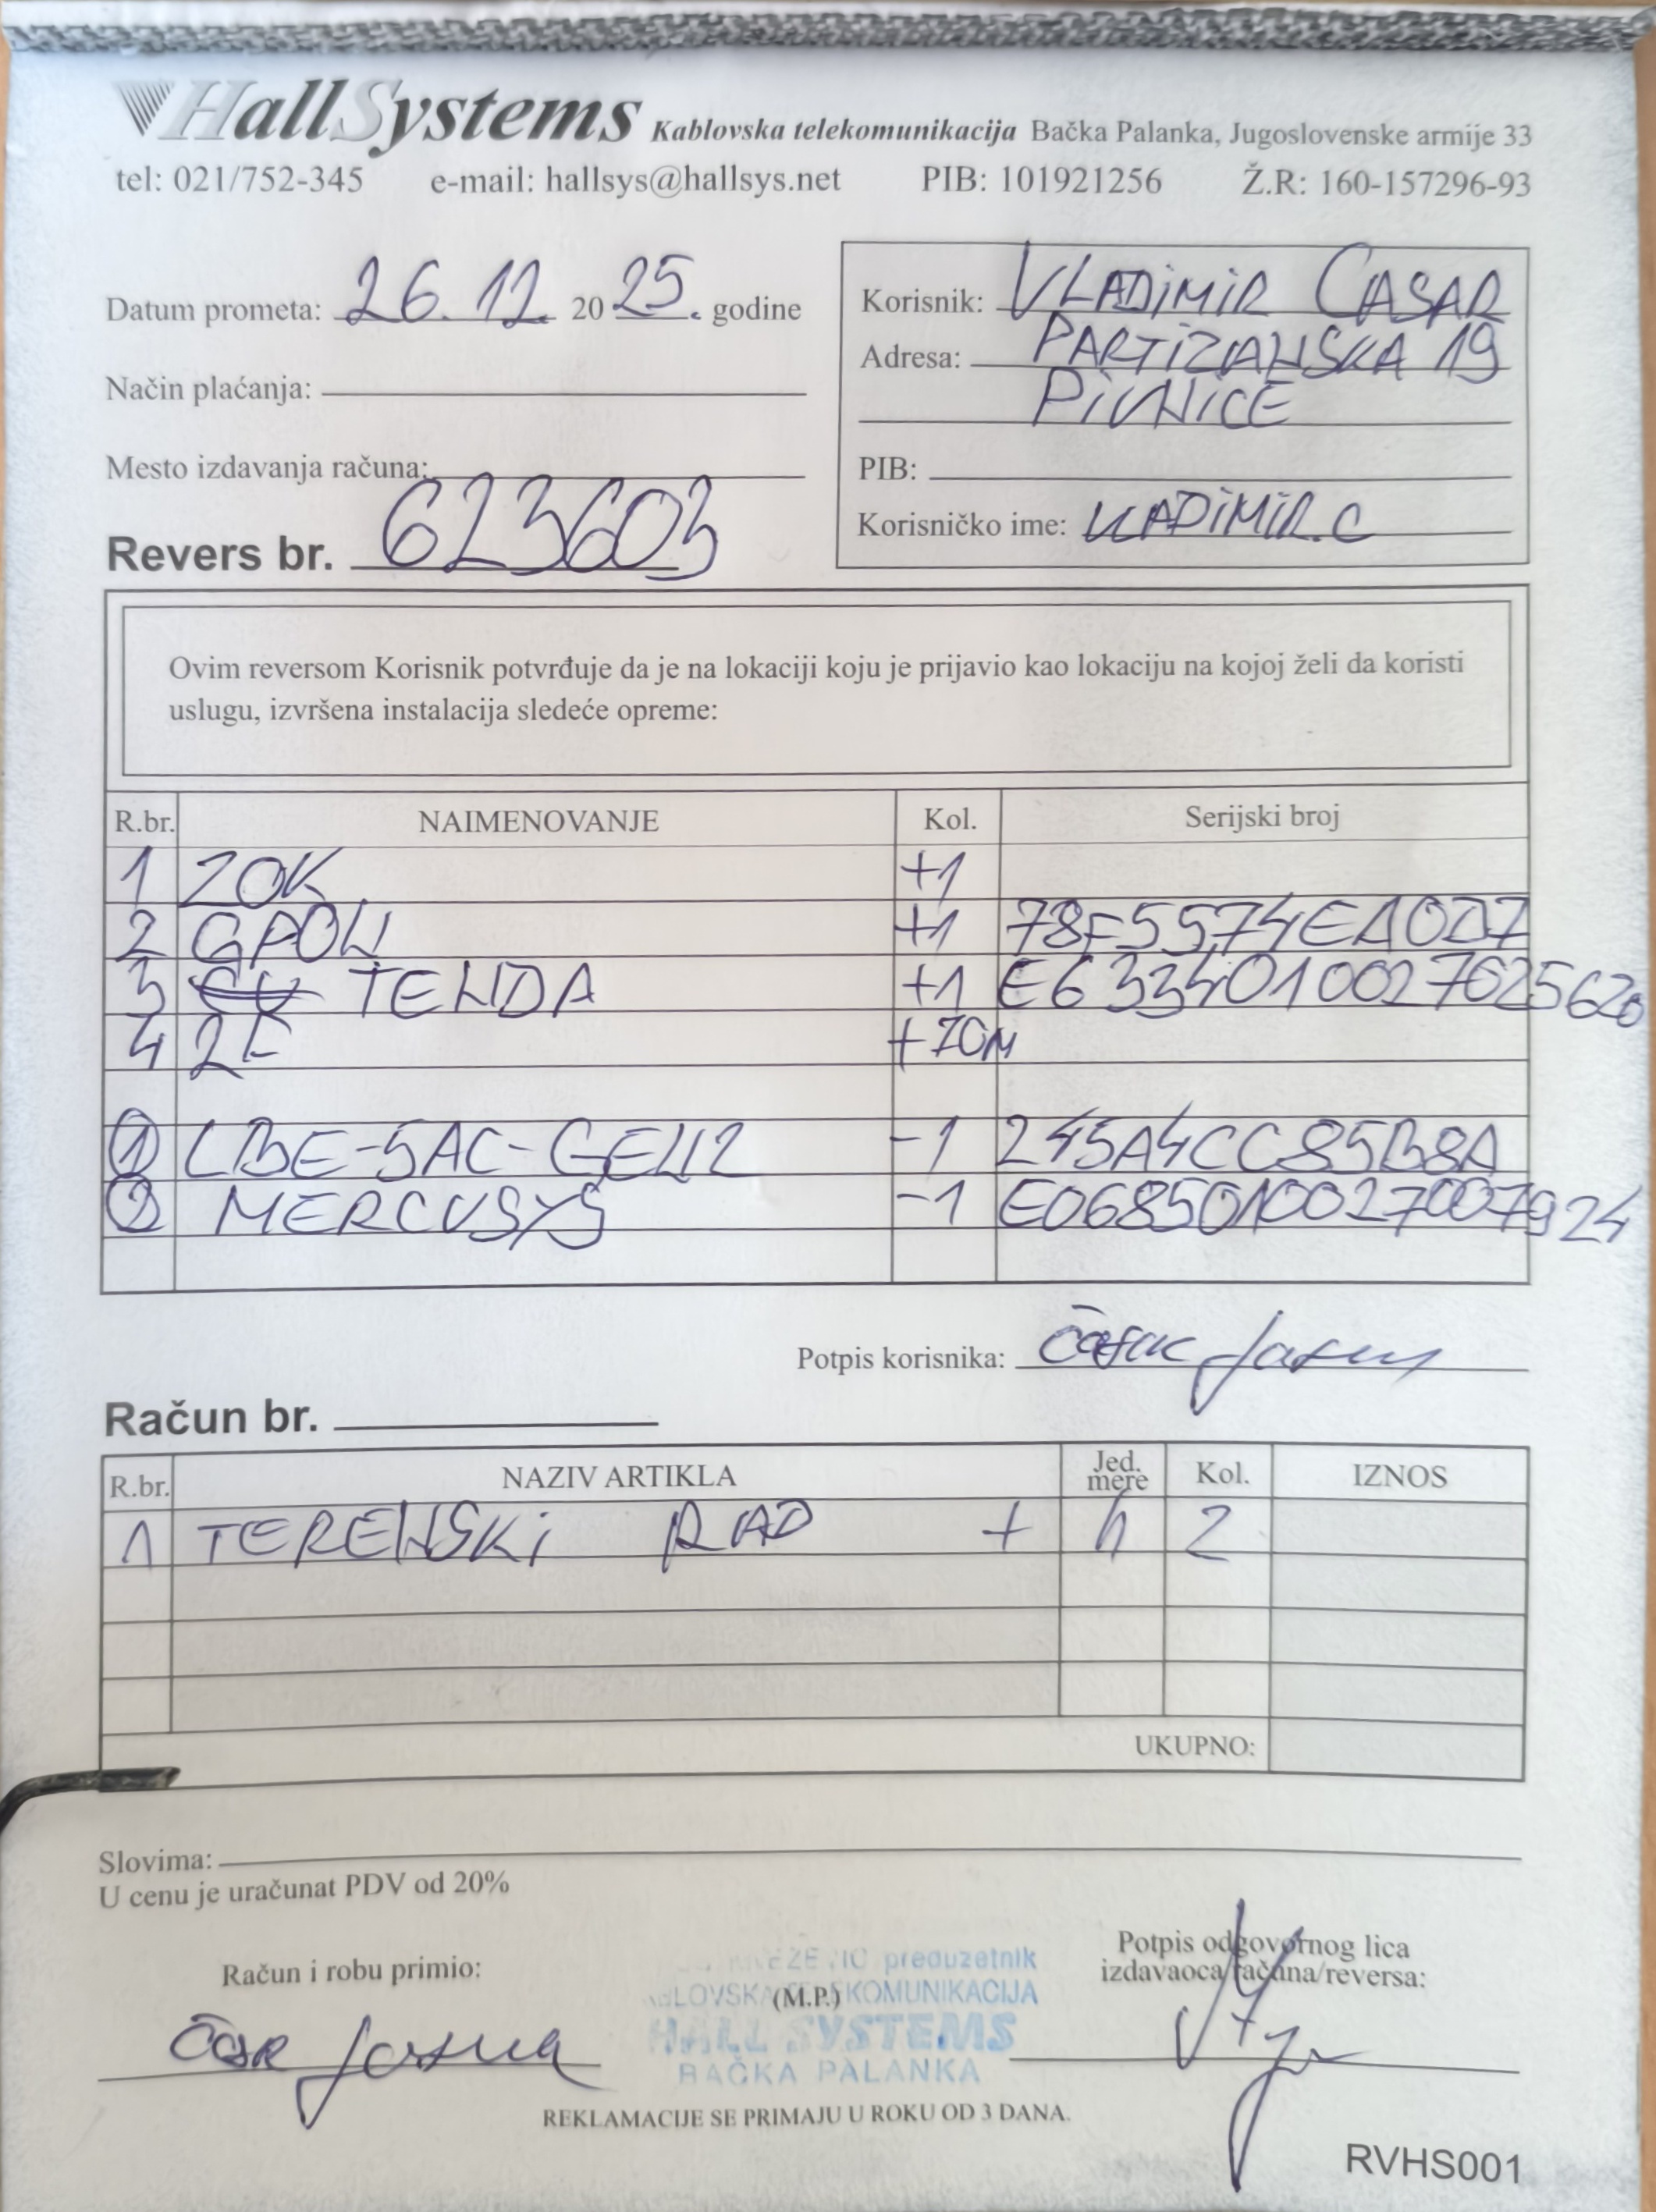 HallSystems Kablovska telekomunikacija Bačka Palanka, Jugoslovenske armije 33
tel: 021/752-345 e-mail: hallsys@hallsys.net PIB: 101921256 Ž.R: 160-157296-93
Datum prometa: 26.12. 2025. godine
Način plaćanja:
Mesto izdavanja računa:
Revers br. 623603
Korisnik: VLADIMIR CASAR
Adresa: PARTIZANSKA 19
PIVNICE
PIB:
Korisničko ime: VLADIMIR.C
Ovim reversom Korisnik potvrđuje da je na lokaciji koju je prijavio kao lokaciju na kojoj želi da koristi
uslugu, izvršena instalacija sledeće opreme:
R.br. NAIMENOVANJE Kol. Serijski broj
1 ZOK +1
2 GPON +1 78F5574EA0D7
3 TENDA +1 E6334010027025620
4 2F +70M
1 LBE-5AC-GEN2 -1 245A4CC85B8A
2 MERCUSYS -1 E0685010027007924
Potpis korisnika:
Račun br.
R.br. NAZIV ARTIKLA Jed. mere Kol. IZNOS
1 TERENSKI RAD + h 2
UKUPNO:
Slovima:
U cenu je uračunat PDV od 20%
Račun i robu primio:
preduzetnik
KOMUNIKACIJA
(M.P.)
HALL SYSTEMS
BAČKA PALANKA
Potpis odgovornog lica
izdavaoca računa/reversa:
REKLAMACIJE SE PRIMAJU U ROKU OD 3 DANA.
RVHS001